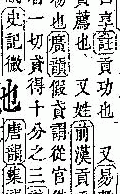 註貢功也 又易
貢薦也 又姓前漢貢
物也廣韻假貣謂從官
一切貣得十分之三
史記微
也 唐韻集